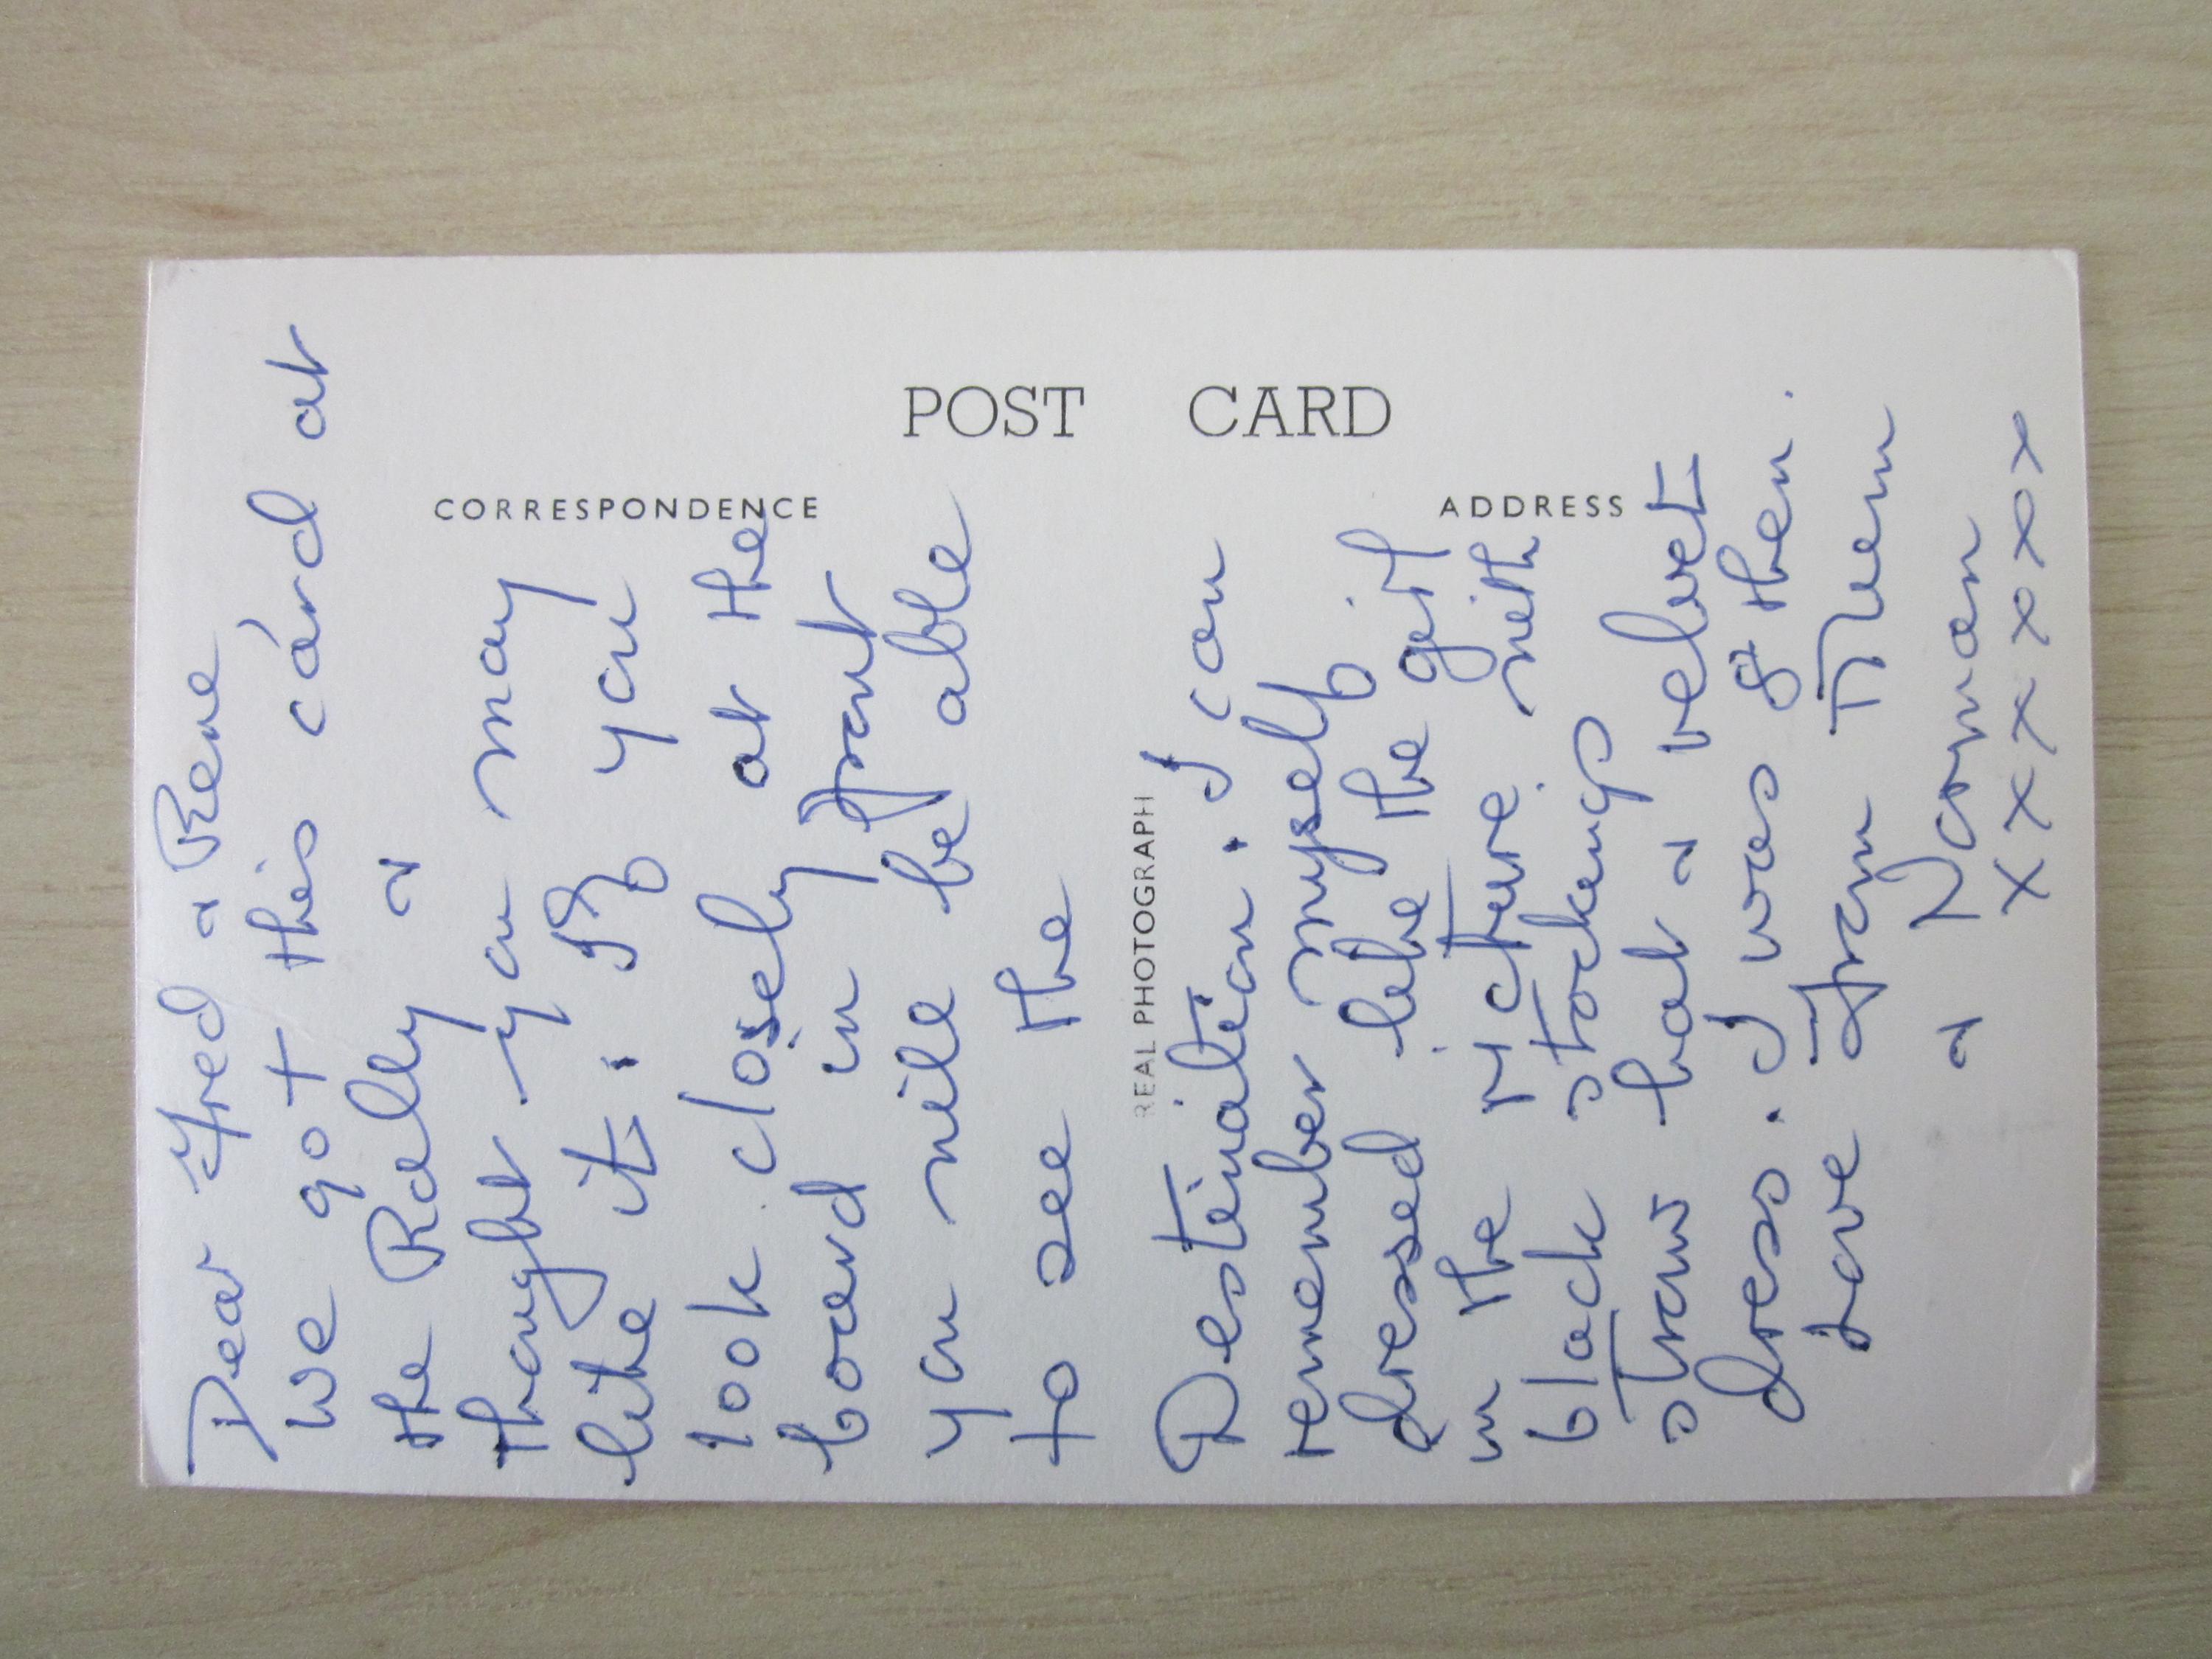 POST CARD
CORRESPONDENCE
ADDRESS
REAL PHOTOGRAPH
Dear Fred & Rene
We got this card at
the Rally &
thought you may
like it. If you
look closely at the
board in front
you will be able
to see the
Destination. I can
remember myself
dressed like the girl
in the picture with
black stockings
straw hat & velvet
dress. I was 8 then.
Love from Mem
& Norman
xxxxxx